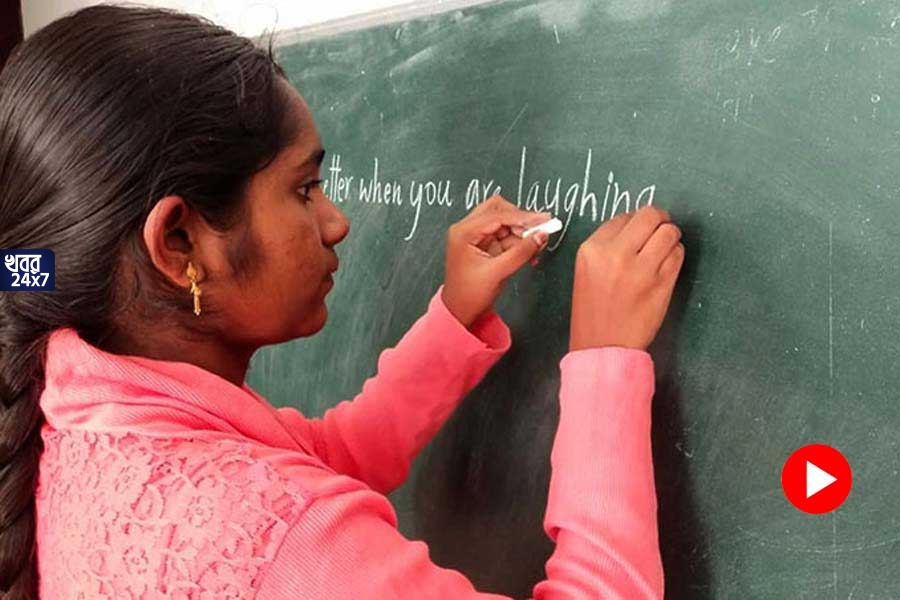 etter when you are laughing
খবর
24x7